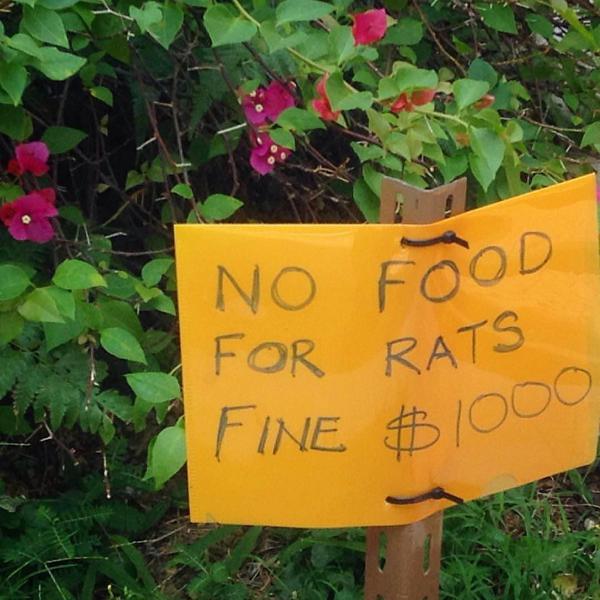 NO FOOD
FOR RATS
FINE $1000